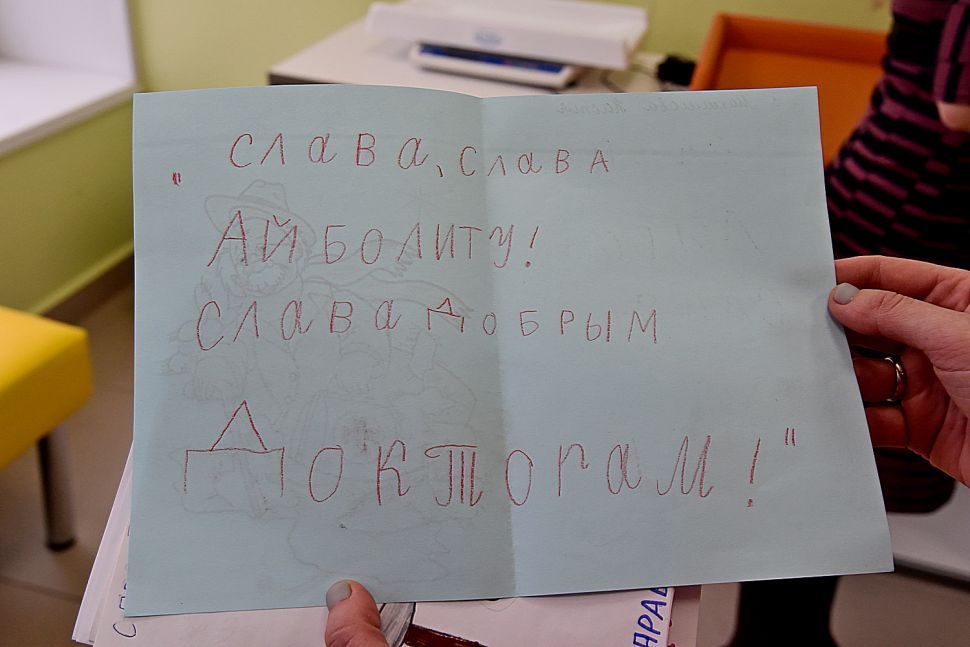 „ Слава, слава
АЙБОЛИТУ!
Слава добрым
Докторам!"
АРАВ